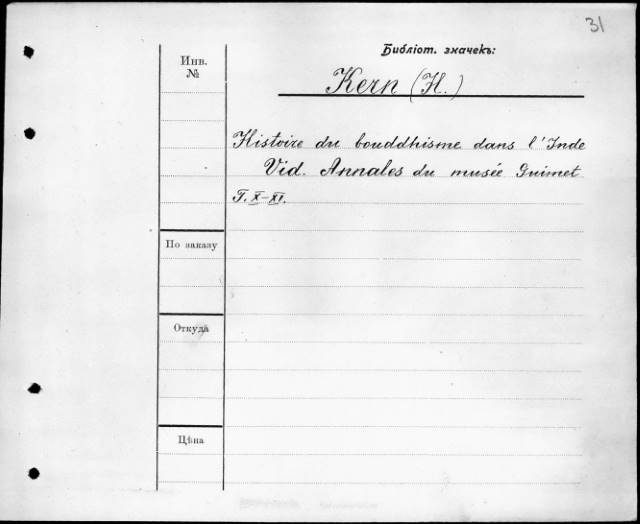 31
Библіот. значекъ:
Инв.
№
Kern (H.)
Histoire du bouddhisme dans l'Inde
Vid. Annales du musée Guimet
T. X-XI.
По заказу
Откуда
Цѣна